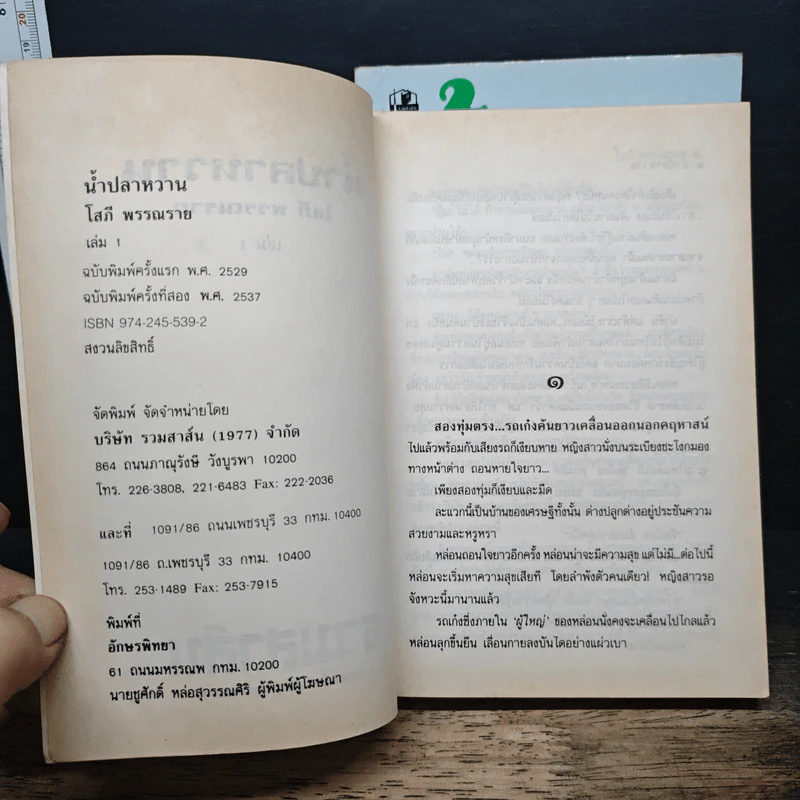 น้ำปลาหวาน
โสภี พรรณราย
เล่ม 1
ฉบับพิมพ์ครั้งแรก พ.ศ. 2529
ฉบับพิมพ์ครั้งที่สอง พ.ศ. 2537
ISBN 974-245-539-2
สงวนลิขสิทธิ์
จัดพิมพ์ จัดจำหน่ายโดย
บริษัท รวมสาส์น (1977) จำกัด
864 ถนนภาณุรังษี วังบูรพา 10200
โทร. 226-3808, 221-6483 Fax: 222-2036
และที่ 1091/86 ถนนเพชรบุรี 33 กทม. 10400
1091/86 ถ.เพชรบุรี 33 กทม. 10400
โทร. 253-1489 Fax: 253-7915
พิมพ์ที่
อักษรพิทยา
61 ถนนมหรรณพ กทม. 10200
นายชูศักดิ์ หล่อสุวรรณศิริ ผู้พิมพ์ผู้โฆษณา
2
๑
สองทุ่มตรง...รถเก๋งคันยาวเคลื่อนออกนอกคฤหาสน์
ไปแล้วพร้อมกับเสียงรถก็เงียบหาย หญิงสาวนั่งบนระเบียงชะโงกมอง
ทางหน้าต่าง ถอนหายใจยาว...
เพียงสองทุ่มก็เงียบและมืด
ละแวกนี้เป็นบ้านของเศรษฐีทั้งนั้น ต่างปลูกต่างอยู่ประชันความ
สวยงามและหรูหรา
หล่อนถอนใจยาวอีกครั้ง หล่อนน่าจะมีความสุข แต่ไม่มี...ต่อไปนี้
หล่อนจะเริ่มหาความสุขเสียที โดยลำพังตัวคนเดียว! หญิงสาวรอ
จังหวะนี้มานานแล้ว
รถเก๋งซึ่งภายใน ‘ผู้ใหญ่’ ของหล่อนนั่งคงจะเคลื่อนไปไกลแล้ว
หล่อนลุกขึ้นยืน เลื่อนกายลงบันไดอย่างแผ่วเบา
19
20